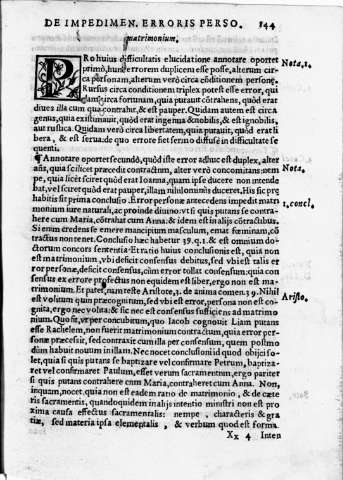 DE IMPEDIMEN. ERRORIS PERSO. 344
matrimonium.
PRo huius difficultatis elucidatione annotare oportet Nota,1.
primò, hunc errorem duplicem esse posse, alterum cir-
ca personam, alterum verò circa cõditionem personę.
Rursus circa conditionem triplex potest esse error, qui
dam circa fortunam, quia puraut cõtrahens, quòd erat
diues illa cum qua contrahit, & est pauper. Quidam autem est circa
genus, quia existimauit, quòd erat ingenua & nobilis, & est ignobilis,
aut rustica. Quidam verò circa libertatem, quia putauit, quòd erat li
bera, & est serua: de quo errore fiet sermo diffusè in difficultate se
quenti.
¶ Annotare oportet secundò, quòd iste error adhuc est duplex, alter
ãs, quia scilicet præcedit contractum, alter verò concomitans: nem Nota.
pe, quia licèt sciret quòd erat Ioanna, quam ipse ducere non intende
bat, vel sciret quòd erat pauper, illam nihilominùs duceret. His sic præ
habitis sit prima conclusio. Error personæ antecedens impedit matri 1.concl.
monium iure naturali, ac proinde diuino: vt si quis putans se contra-
here cum Maria, contrahat cum Anna: & idem est in alijs cõtractibus.
Si enim credens se emere mancipium masculum, emat fœminam, cõ
tractus non tenet. Conclusio hæc habetur 39. q.1. & est omnium do-
ctorum concors sententia. Et ratio huius conclusionis est, quia non
est matrimonium, vbi deficit consensus debitus, sed vbi est talis er
ror personæ, deficit consensus, cùm error tollat consensum: quia con
sensus ex errore profectus non equidem est liber, ergo non est ma-
trimonium. Et patet, nam teste Aristote. 3. de anima comen. 39. Nihil
est volitum quin præcognitum, sed vbi est error, persona non est co- Aristo.
gnita, ergo nec volita: & sic nec est consensus sufficiens ad matrimo
nium. Quòd si, vt per concubitum, quo Iacob cognouit Liam putans
esse Rachelem, non fuerit matrimonium contractum, quia error per-
sonæ præcessit, sed contraxit cum illa per consensum, quem postmo
dùm habuit nouum in illam. Nec nocet conclusioni id quod obijci so-
let, quia si quis putans se baptizare vel confirmare Petrum, baptiza-
ret vel confirmaret Paulum, esset verum sacramentum, ergo pariter
si quis putans contrahere cum Maria, contraheret cum Anna. Non,
inquam, nocet. quia non est eadem ratio de matrimonio, & de cæte
ris sacramentis, quandoquidem in alijs intentio ministri non est pro
xima causa effectus sacramentalis: nempe, characteris & gra
tiæ, sed materia ipsa elementalis, & verbum quod est forma.
Xx 4 Inten